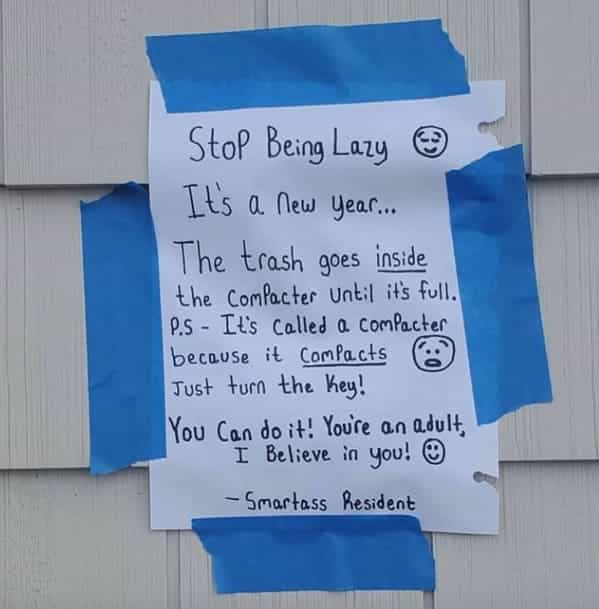 Stop Being Lazy
It's a new year...
The trash goes inside
the compacter until it's full.
P.S - It's called a compacter
because it compacts
Just turn the key!
You can do it! You're an adult,
I Believe in you!
- Smartass Resident